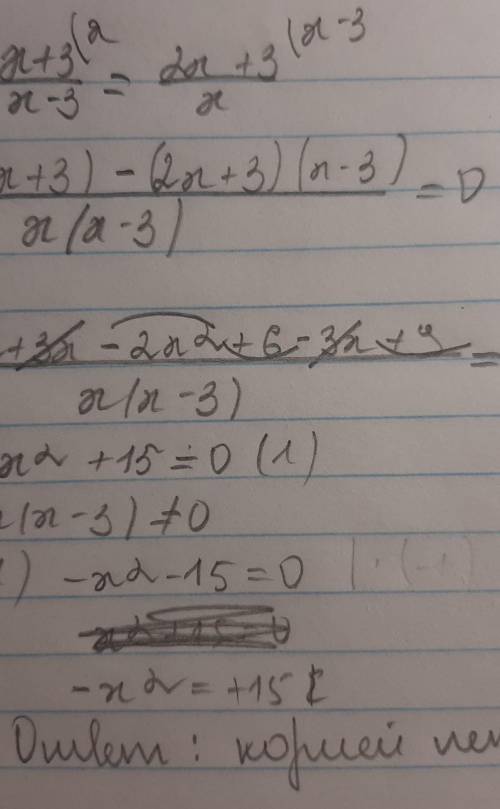 x+3(x / x-3 = 2x+3(x-3 / x
x+3) - (2x+3)(x-3) / x(x-3) = 0
+3x - 2x²+6-3x+9 / x(x-3) =
x² +15 = 0 (1)
(x-3) ≠ 0
) -x²-15=0 | · (-1)
-x² = +15
Ответ: корней нет